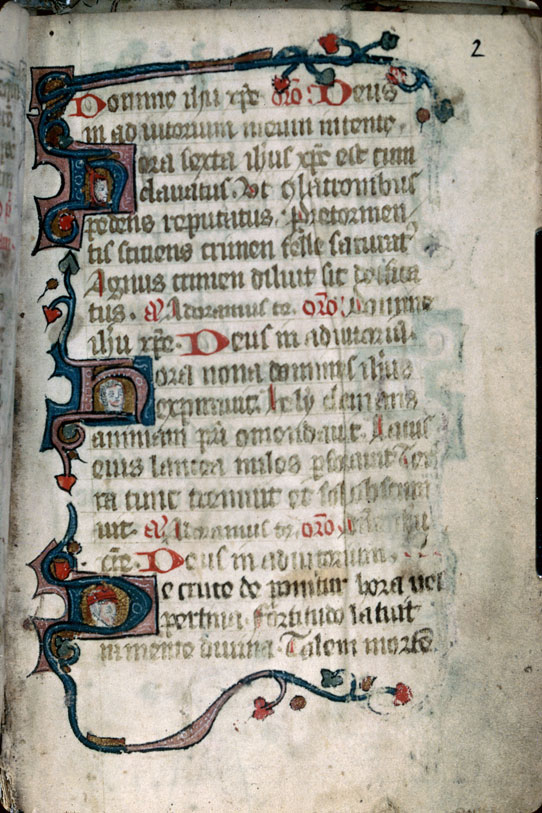 2
Domine ihu xpe oro Deus
in adiutorium meum intente.
Hora sexta ihus xpc est cum
clavatus Et cum latronibus
pedens reputatus. Pre tormen
tis sitiens crimen felle saturat
Agnus crimen diluit sic
tus. Adoramus te. oro Domine
ihu xpe. Deus in adiutoriu.
Hora nona dominus ihus
expiravit. hely clemens
animam pri comendavit. Latus
eius lancea miles
ra tunc tremuit et sol
vit. Adoramus te. oro
Deus in adiutorium.
De cruce deponitur hora ves
pertina. fortitudo latuit
in mente divina Talem morte